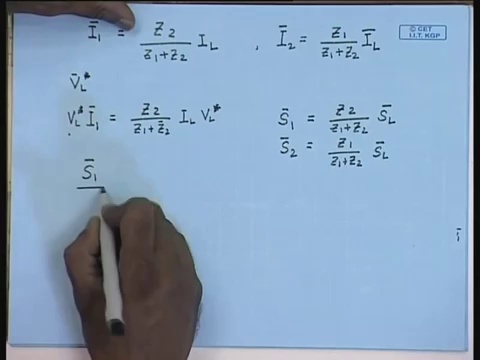 Ī₁ = Z2/(Z1+Z2) I_L , Ī₂ = Z1/(Z1+Z2) Ī_L
© CET
I.I.T. KGP
V̄_L*
V_L* Ī₁ = Z2/(Z1+Z̄2) I_L V_L*
S̄₁ = Z2/(Z1+Z2) S̄_L
S̄₂ = Z1/(Z1+Z2) S̄_L
S̄₁